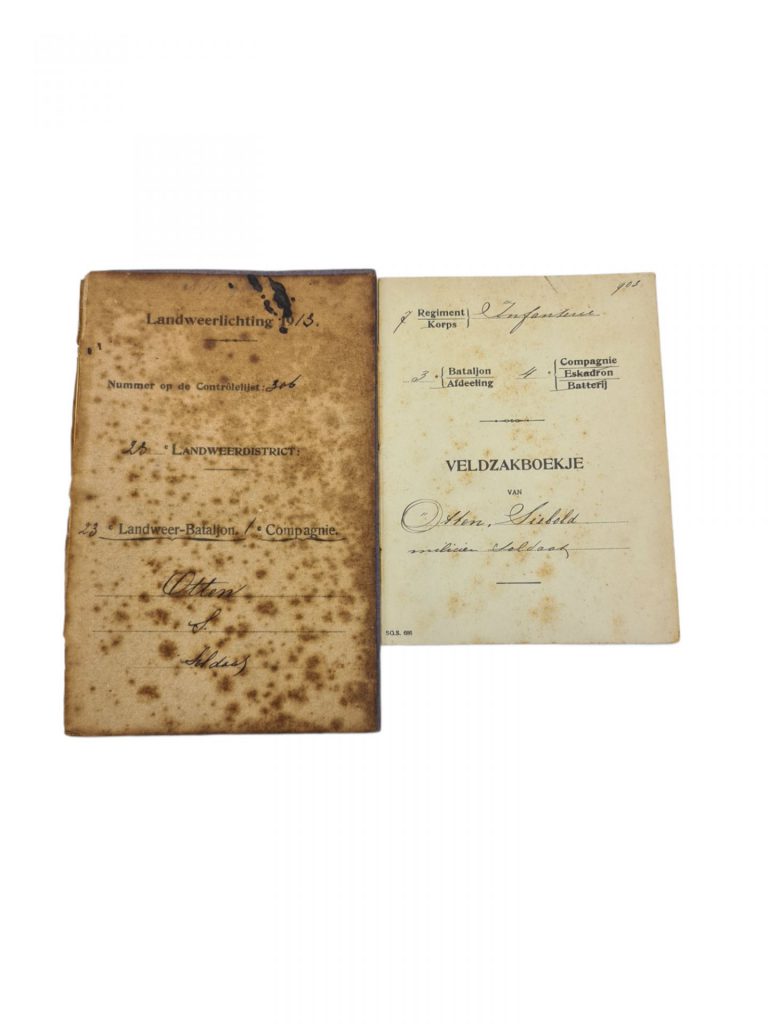 Landweerlichting 1913.
Nummer op de Contrôlelijst: 306
23e LANDWEERDISTRICT:
23e Landweer-Bataljon. 1e Compagnie.
Otten
S.
Soldaat
903
7 Regiment Infanterie
Korps
3e Bataljon 4e Compagnie
Afdeeling Eskadron
Batterij
VELDZAKBOEKJE
VAN
Otten, Siebold
milicien Soldaat
SG.S. 686